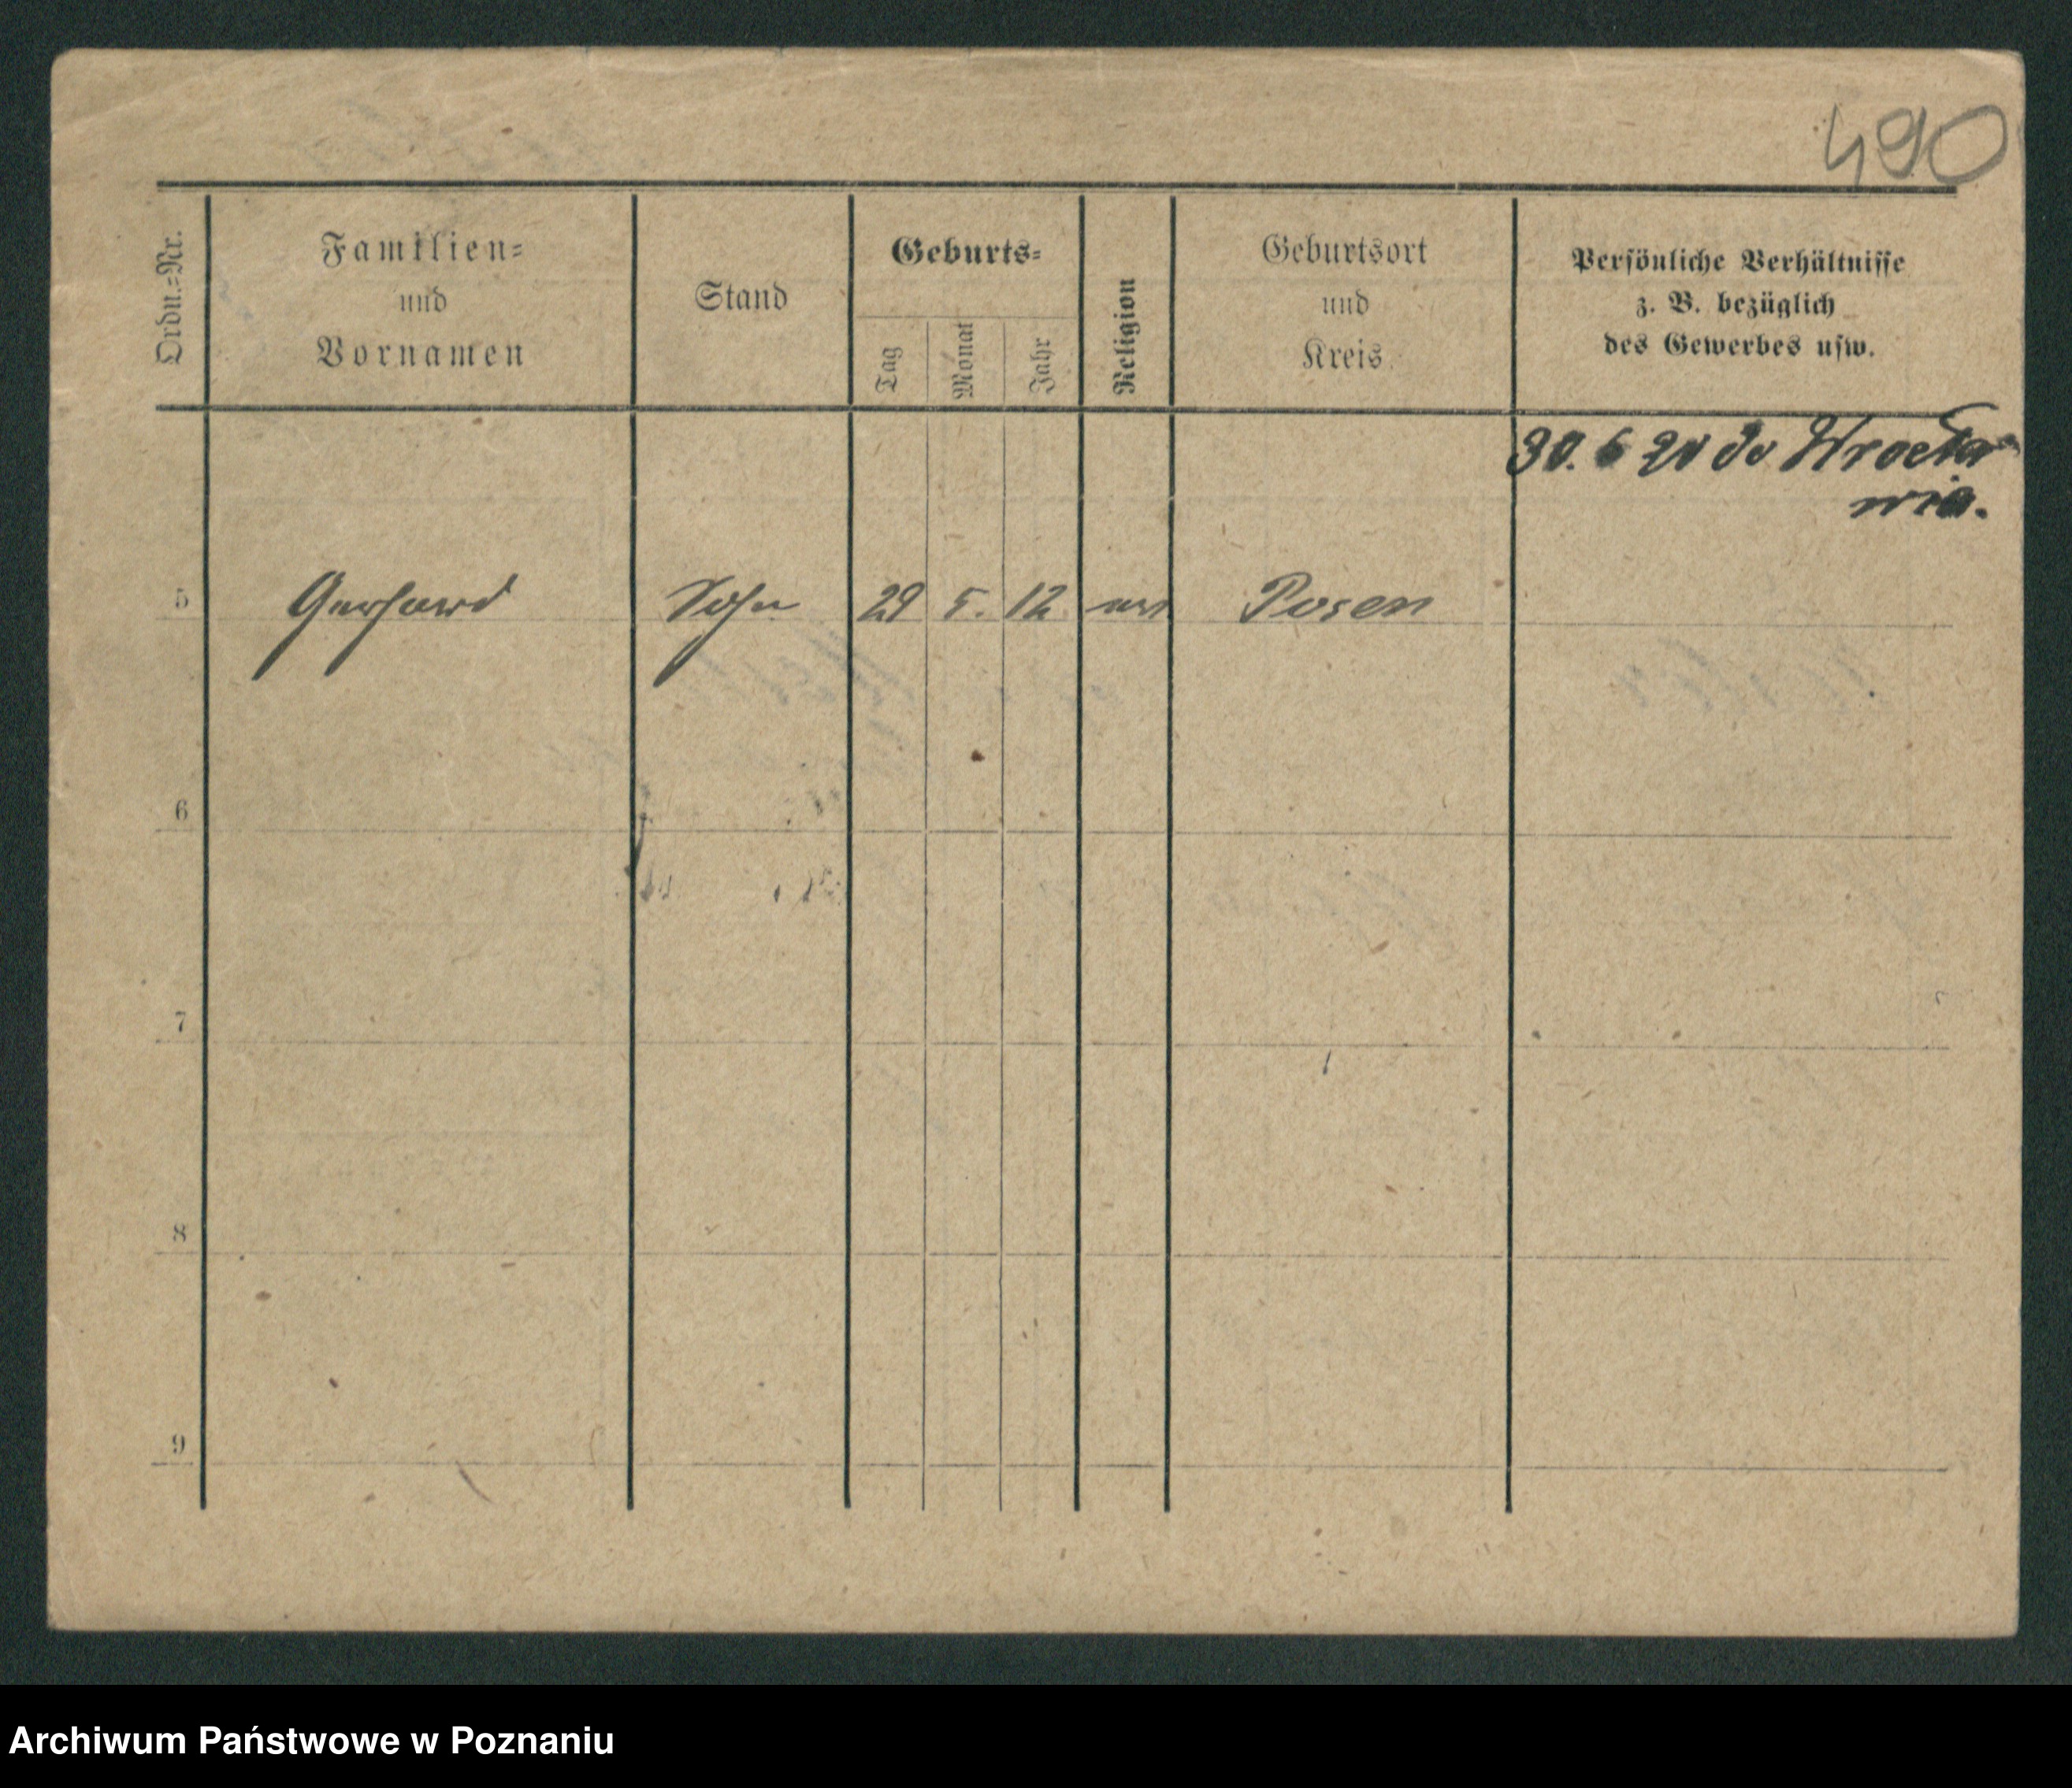 490
Ordn.-Nr.
Familien-
und
Vornamen
Stand
Geburts-
Tag
Monat
Jahr
Religion
Geburtsort
und
Kreis
Persönliche Verhältnisse
z. B. bezüglich
des Gewerbes usw.
30. 6 20 do Wrocła
wia.
5 Gerhard Sohn 29 5. 12 Posen
6
7
8
9
Archiwum Państwowe w Poznaniu